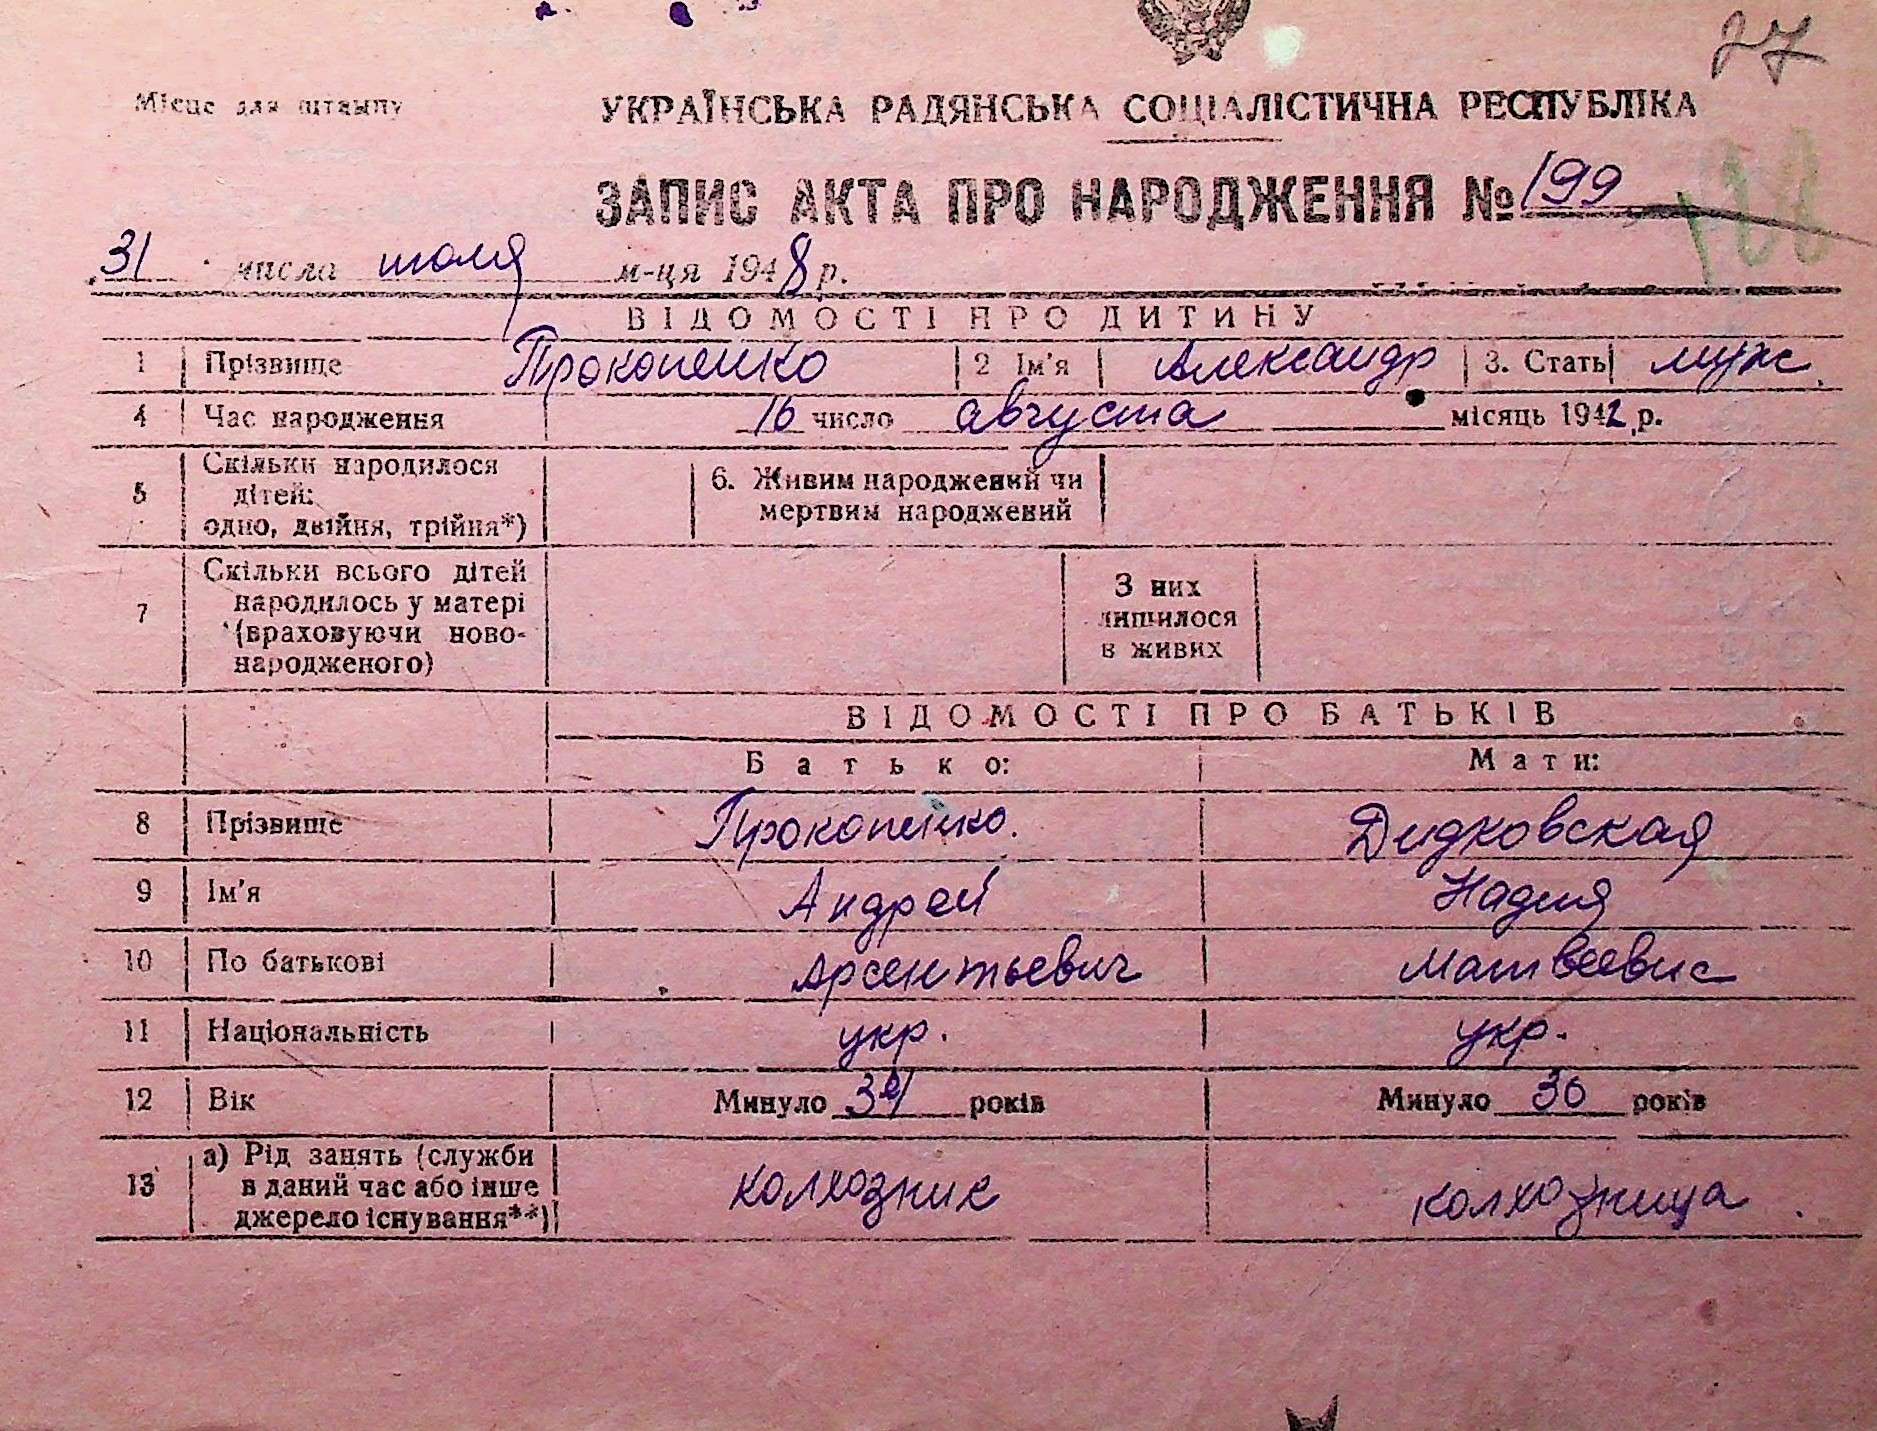 27
Місце для штампу
УКРАЇНСЬКА РАДЯНСЬКА СОЦІАЛІСТИЧНА РЕСПУБЛІКА
ЗАПИС АКТА ПРО НАРОДЖЕННЯ № 199
31 числа июля м-ця 1948 р.
ВІДОМОСТІ ПРО ДИТИНУ
1 Прізвище Прокопенко 2 Ім'я Александр 3. Стать муж
4 Час народження 16 число августа місяць 1942 р.
5 Скільки народилося дітей: одно, двійня, трійня*) 6. Живим народжений чи мертвим народжений
7 Скільки всього дітей народилось у матері (враховуючи новонародженого) З них лишилося в живих
ВІДОМОСТІ ПРО БАТЬКІВ
Батько: Мати:
8 Прізвище Прокопенко. Дидковская
9 Ім'я Андрей Надия
10 По батькові Арсентьевич Матвеевис
11 Національність укр. укр.
12 Вік Минуло років Минуло 30 років
13 а) Рід занять (служби в даний час або інше джерело існування**) колхозник колхозница